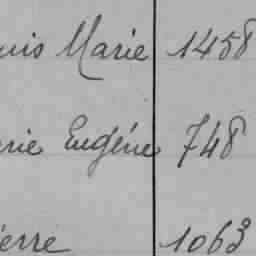 uis Marie 1458
rie Eugène 748
ierre 1063